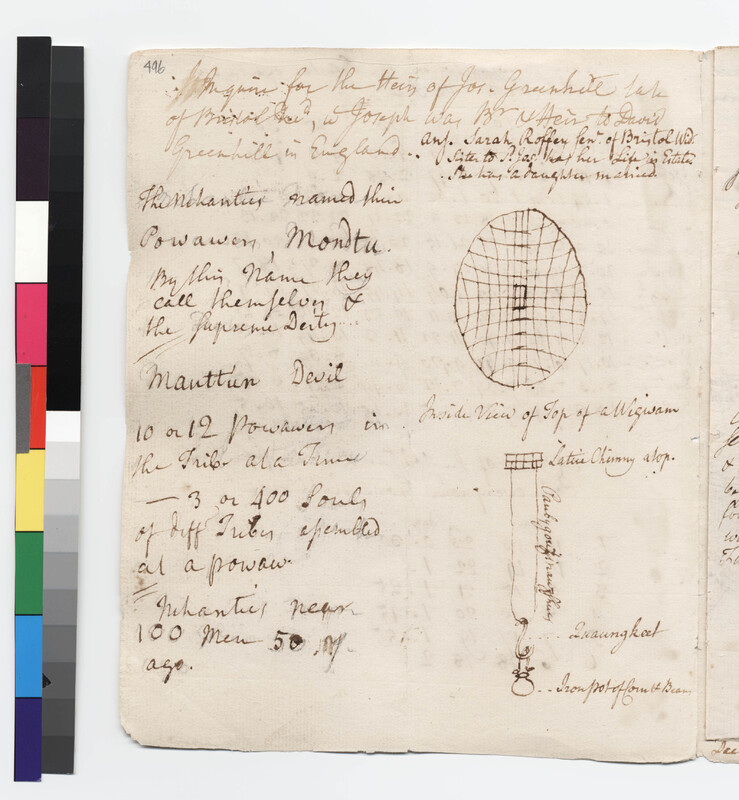 496
Inquire for the Heirs of Jos. Greenhill late
of Bristol Decd, w Joseph was Br & Heir to David
Greenhill in England ..
Ans. Sarah Roffey Senr. of Bristol Wid.
Sister to sd. Jos. has her Life in Estates
She has a daughter married.
The Nehantics named their
Powawers, Mondtu.
By this Name they
call themselves &
the Supreme Deity
Mauttun Devil
10 or 12 Powawers in
the Tribe at a Time
— 3 or 400 Souls
of diff Tribes assembled
at a powaw.
Nehantics near
100 Men 50 y
ago.
Inside View of Top of a Wigwam
Latice Chimny atop.
Quaungkeet
Iron pot of Corn & Beans